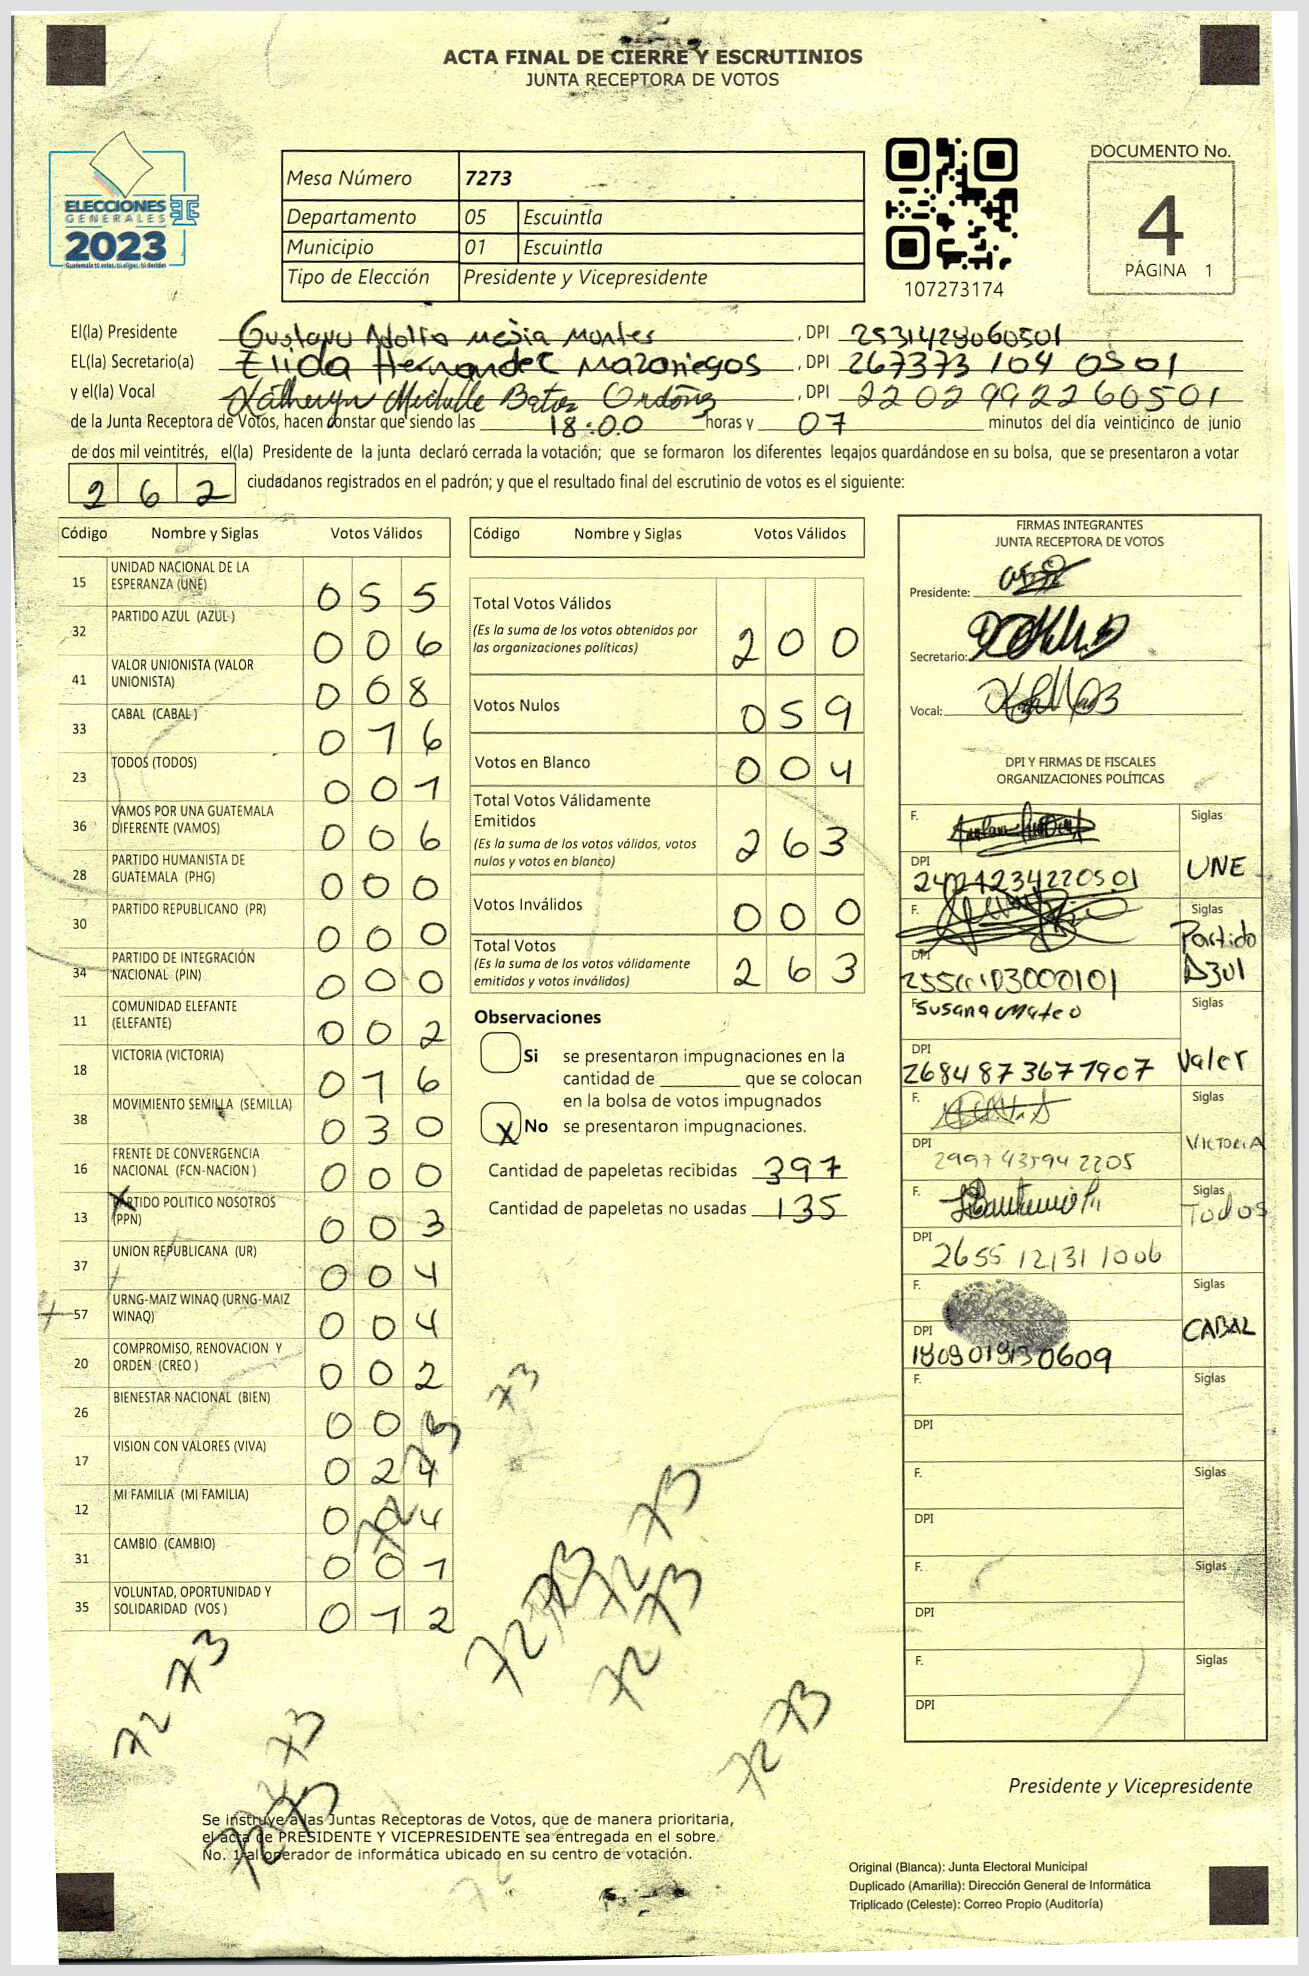 ACTA FINAL DE CIERRE Y ESCRUTINIOS
JUNTA RECEPTORA DE VOTOS
ELECCIONES
GENERALES
2023
Guatemala tú votas, tú eliges, tú decides
Mesa Número 7273
Departamento 05 Escuintla
Municipio 01 Escuintla
Tipo de Elección Presidente y Vicepresidente
107273174
DOCUMENTO No.
4
PÁGINA 1
El(la) Presidente Gustavo Adolfo Mejia Montes, DPI 2531428060501
EL(la) Secretario(a) Elida Hernandez Mazariegos, DPI 267373 104 0501
y el(la) Vocal Katheryn Michelle Batos Ordoñez, DPI 2202992260501
de la Junta Receptora de Votos, hacen constar que siendo las 18:00 horas y 07 minutos del día veinticinco de junio
de dos mil veintitrés, el(la) Presidente de la junta declaró cerrada la votación; que se formaron los diferentes legajos guardándose en su bolsa, que se presentaron a votar
262 ciudadanos registrados en el padrón; y que el resultado final del escrutinio de votos es el siguiente:
Código Nombre y Siglas Votos Válidos
15 UNIDAD NACIONAL DE LA ESPERANZA (UNE) 055
32 PARTIDO AZUL (AZUL) 006
41 VALOR UNIONISTA (VALOR UNIONISTA) 008
33 CABAL (CABAL) 016
23 TODOS (TODOS) 001
36 VAMOS POR UNA GUATEMALA DIFERENTE (VAMOS) 006
28 PARTIDO HUMANISTA DE GUATEMALA (PHG) 000
30 PARTIDO REPUBLICANO (PR) 000
34 PARTIDO DE INTEGRACIÓN NACIONAL (PIN) 000
11 COMUNIDAD ELEFANTE (ELEFANTE) 002
18 VICTORIA (VICTORIA) 016
38 MOVIMIENTO SEMILLA (SEMILLA) 030
16 FRENTE DE CONVERGENCIA NACIONAL (FCN-NACION) 000
13 PARTIDO POLITICO NOSOTROS (PPN) 003
37 UNION REPUBLICANA (UR) 004
57 URNG-MAIZ WINAQ (URNG-MAIZ WINAQ) 004
20 COMPROMISO, RENOVACION Y ORDEN (CREO) 002
26 BIENESTAR NACIONAL (BIEN) 006
17 VISION CON VALORES (VIVA) 024
12 MI FAMILIA (MI FAMILIA) 004
31 CAMBIO (CAMBIO) 001
35 VOLUNTAD, OPORTUNIDAD Y SOLIDARIDAD (VOS) 012
Código Nombre y Siglas Votos Válidos
Total Votos Válidos 200
(Es la suma de los votos obtenidos por
las organizaciones políticas)
Votos Nulos 059
Votos en Blanco 004
Total Votos Válidamente
Emitidos 263
(Es la suma de los votos válidos, votos
nulos y votos en blanco)
Votos Inválidos 000
Total Votos 263
(Es la suma de los votos válidamente
emitidos y votos inválidos)
Observaciones
Si se presentaron impugnaciones en la
cantidad de ________ que se colocan
en la bolsa de votos impugnados
X No se presentaron impugnaciones.
Cantidad de papeletas recibidas 397
Cantidad de papeletas no usadas 135
FIRMAS INTEGRANTES
JUNTA RECEPTORA DE VOTOS
Presidente:
Secretario:
Vocal:
DPI Y FIRMAS DE FISCALES
ORGANIZACIONES POLÍTICAS
F. Siglas
DPI UNE
F. Siglas
DPI Partido Azul
F. Susana Mateo Siglas
DPI 2684873671907 Valor
F. Siglas
DPI 2997435942205 VICTORIA
F. Siglas
DPI 2655 12131 1006 Todos
F. Siglas
DPI CABAL
F. Siglas
DPI
F. Siglas
DPI
F. Siglas
DPI
F. Siglas
DPI
73
7273
7273
7273
7273
7273
7273
7273
7273
Presidente y Vicepresidente
Se instruye a las Juntas Receptoras de Votos, que de manera prioritaria,
el acta de PRESIDENTE Y VICEPRESIDENTE sea entregada en el sobre
No. 1 al operador de informática ubicado en su centro de votación.
Original (Blanca): Junta Electoral Municipal
Duplicado (Amarilla): Dirección General de Informática
Triplicado (Celeste): Correo Propio (Auditoría)